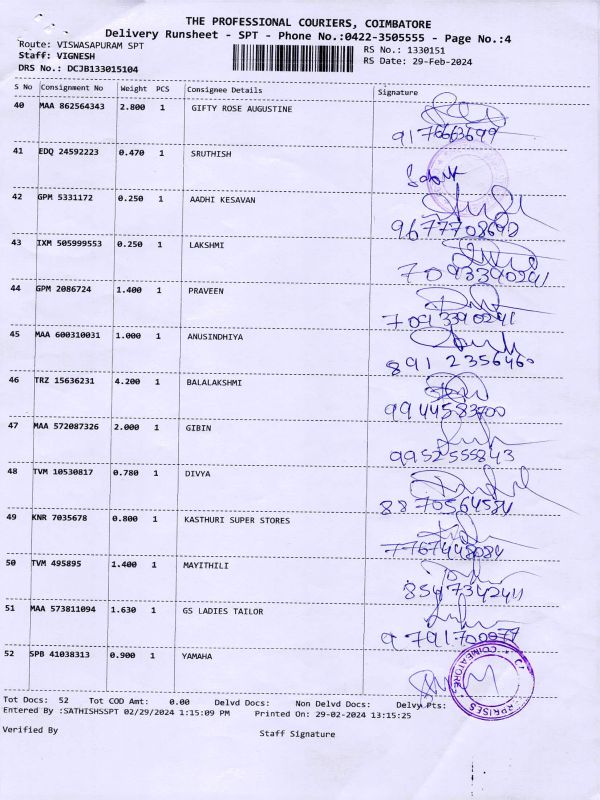 THE PROFESSIONAL COURIERS, COIMBATORE
Delivery Runsheet - SPT - Phone No.:0422-3505555 - Page No.:4
Route: VISWASAPURAM SPT RS No.: 1330151
Staff: VIGNESH RS Date: 29-Feb-2024
DRS No.: DCJB133015104
S No Consignment No Weight PCS Consignee Details Signature
40 MAA 862564343 2.800 1 GIFTY ROSE AUGUSTINE
9176663699
41 EDQ 24592223 0.470 1 SRUTHISH
42 GPM 5331172 0.250 1 AADHI KESAVAN
9677708690
43 IXM 505999553 0.250 1 LAKSHMI
7093390241
44 GPM 2086724 1.400 1 PRAVEEN
7093390241
45 MAA 600310031 1.000 1 ANUSINDHIYA
8912356460
46 TRZ 15636231 4.200 1 BALALAKSHMI
9944583700
47 MAA 572087326 2.000 1 GIBIN
9952555843
48 TVM 10530817 0.780 1 DIVYA
8870564584
49 KNR 7035678 0.800 1 KASTHURI SUPER STORES
7767448084
50 TVM 495895 1.400 1 MAYITHILI
8547342411
51 MAA 573811094 1.630 1 GS LADIES TAILOR
9791700977
52 SPB 41038313 0.900 1 YAMAHA
COIMBATORE
RPRISES
Tot Docs: 52 Tot COD Amt: 0.00 Delvd Docs: Non Delvd Docs: Delvy Pts:
Entered By :SATHISHSSPT 02/29/2024 1:15:09 PM Printed On: 29-02-2024 13:15:25
Verified By Staff Signature